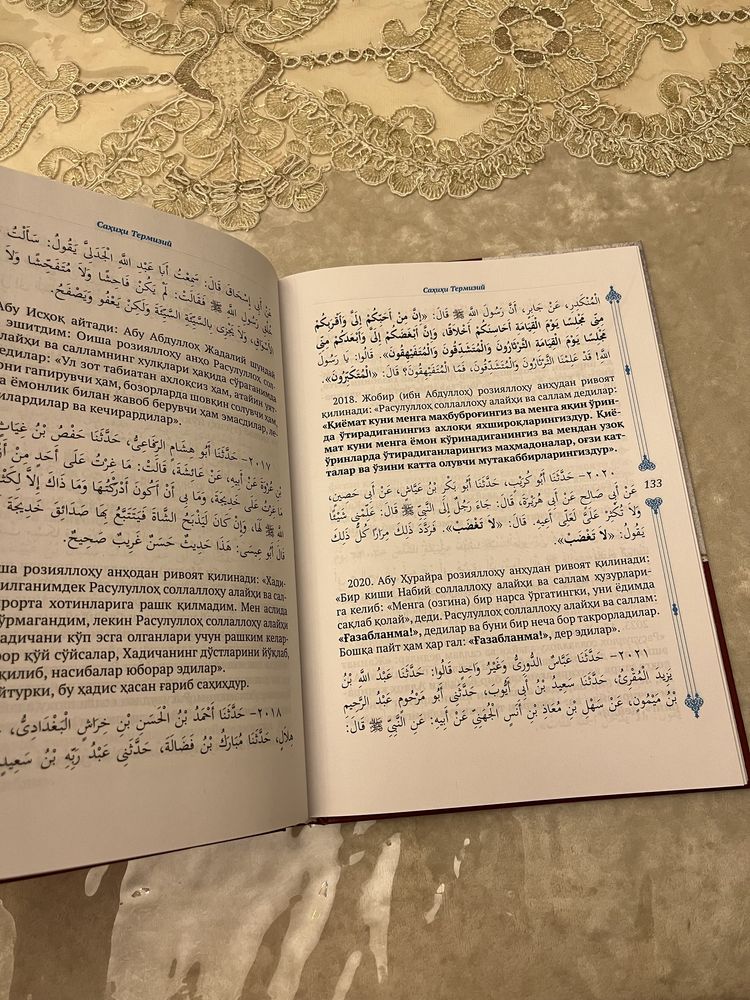 Саҳиҳи Термизий
عَنْ أَبِي إِسْحَاقَ قَالَ: سَمِعْتُ أَبَا عَبْدِ اللَّهِ الْجَدَلِيَّ يَقُولُ: سَأَلْتُ
خُلُقِ رَسُولِ اللَّهِ ﷺ فَقَالَتْ: لَمْ يَكُنْ فَاحِشًا وَلَا مُتَفَحِّشًا وَلَا
الْأَسْوَاقِ، وَلَا يَجْزِي بِالسَّيِّئَةِ السَّيِّئَةَ وَلَكِنْ يَعْفُو وَيَصْفَحُ.
Абу Исҳоқ айтади: Абу Абдуллоҳ Жадалий шундай
эшитдим: Оиша розияллоҳу анҳо Расулуллоҳ сол-
лайҳи ва салламнинг хулқлари ҳақида сўраганимда
дедилар: «Ул зот табиатан ахлоқсиз ҳам, атайин уят-
гапирувчи ҳам, бозорларда шовқин солувчи ҳам,
ёмонлик билан жавоб берувчи ҳам эмасдилар, ле-
кечирардилар».
٢٠١٧– حَدَّثَنَا أَبُو هِشَامٍ الرِّفَاعِيُّ، حَدَّثَنَا حَفْصُ بْنُ غِيَاثٍ
بْنِ عُرْوَةَ عَنْ أَبِيهِ، عَنْ عَائِشَةَ، قَالَتْ: مَا غِرْتُ عَلَى أَحَدٍ مِنْ
مَا غِرْتُ عَلَى خَدِيجَةَ، وَمَا بِي أَنْ أَكُونَ أَدْرَكْتُهَا وَمَا ذَاكَ إِلَّا لِكَثْرَةِ
اللَّهِ ﷺ لَهَا، وَإِنْ كَانَ لَيَذْبَحُ الشَّاةَ فَيَتَتَبَّعُ بِهَا صَدَائِقَ خَدِيجَةَ
قَالَ أَبُو عِيسَى: هَذَا حَدِيثٌ حَسَنٌ غَرِيبٌ صَحِيحٌ.
розияллоҳу анҳодан ривоят қилинади: «Хади-
қилганимдек Расулуллоҳ соллаллоҳу алайҳи ва сал-
хотинларига рашк қилмадим. Мен аслида
кўрмагандим, лекин Расулуллоҳ соллаллоҳу алайҳи
Хадичани кўп эсга олганлари учун рашким келар-
қўй сўйсалар, Хадичанинг дўстларини йўқлаб,
қилиб, насибалар юборар эдилар».
бу ҳадис ҳасан ғариб саҳиҳдур.
٢٠١٨– حَدَّثَنَا أَحْمَدُ بْنُ الْحَسَنِ بْنِ خِرَاشٍ الْبَغْدَادِيُّ،
هِلَالٍ، حَدَّثَنَا مُبَارَكُ بْنُ فَضَالَةَ، حَدَّثَنِي عَبْدُ رَبِّهِ بْنُ سَعِيدٍ
Саҳиҳи Термизий
الْمُنْكَدِرِ، عَنْ جَابِرٍ، أَنَّ رَسُولَ اللَّهِ ﷺ قَالَ: «إِنَّ مِنْ أَحَبِّكُمْ إِلَيَّ وَأَقْرَبِكُمْ
مِنِّي مَجْلِسًا يَوْمَ الْقِيَامَةِ أَحَاسِنَكُمْ أَخْلَاقًا، وَإِنَّ أَبْغَضَكُمْ إِلَيَّ وَأَبْعَدَكُمْ مِنِّي
مَجْلِسًا يَوْمَ الْقِيَامَةِ الثَّرْثَارُونَ وَالْمُتَشَدِّقُونَ وَالْمُتَفَيْهِقُونَ». قَالُوا: يَا رَسُولَ
اللَّهِ! قَدْ عَلِمْنَا الثَّرْثَارُونَ وَالْمُتَشَدِّقُونَ، فَمَا الْمُتَفَيْهِقُونَ؟ قَالَ: «الْمُتَكَبِّرُونَ».
2018. Жобир (ибн Абдуллоҳ) розияллоҳу анҳудан ривоят
қилинади: «Расулуллоҳ соллаллоҳу алайҳи ва саллам дедилар:
«Қиёмат куни менга маҳбуброғингиз ва менга яқин ўрин-
да ўтирадиганингиз ахлоқи яхшироқларингиздур. Қиё-
мат куни менга ёмон кўринадиганингиз ва мендан узоқ
ўринларда ўтирадиганларингиз маҳмадоналар, оғзи кат-
талар ва ўзини катта олувчи мутакаббирларингиздур».
٢٠٢٠– حَدَّثَنَا أَبُو كُرَيْبٍ، حَدَّثَنَا أَبُو بَكْرِ بْنُ عَيَّاشٍ، عَنْ أَبِي حَصِينٍ،
عَنْ أَبِي صَالِحٍ عَنْ أَبِي هُرَيْرَةَ، قَالَ: جَاءَ رَجُلٌ إِلَى النَّبِيِّ ﷺ قَالَ: عَلِّمْنِي شَيْئًا
وَلَا تُكْثِرْ عَلَيَّ لَعَلِّي أَعِيهِ. قَالَ: «لَا تَغْضَبْ». فَرَدَّدَ ذَلِكَ مِرَارًا كُلُّ ذَلِكَ
يَقُولُ: «لَا تَغْضَبْ».
133
2020. Абу Ҳурайра розияллоҳу анҳудан ривоят қилинади:
«Бир киши Набий соллаллоҳу алайҳи ва саллам ҳузурлари-
га келиб: «Менга (озгина) бир нарса ўргатингки, уни ёдимда
сақлаб қолай», деди. Расулуллоҳ соллаллоҳу алайҳи ва саллам:
«Ғазабланма!», дедилар ва буни бир неча бор такрорладилар.
Бошқа пайт ҳам ҳар гал: «Ғазабланма!», дер эдилар».
٢٠٢١– حَدَّثَنَا عَبَّاسٌ الدُّورِيُّ وَغَيْرُ وَاحِدٍ قَالُوا: حَدَّثَنَا عَبْدُ اللَّهِ بْنُ
يَزِيدَ الْمُقْرِئُ، حَدَّثَنَا سَعِيدُ بْنُ أَبِي أَيُّوبَ، حَدَّثَنِي أَبُو مَرْحُومٍ عَبْدُ الرَّحِيمِ
بْنُ مَيْمُونٍ، عَنْ سَهْلِ بْنِ مُعَاذِ بْنِ أَنَسٍ الْجُهَنِيِّ عَنْ أَبِيهِ: عَنِ النَّبِيِّ ﷺ قَالَ: